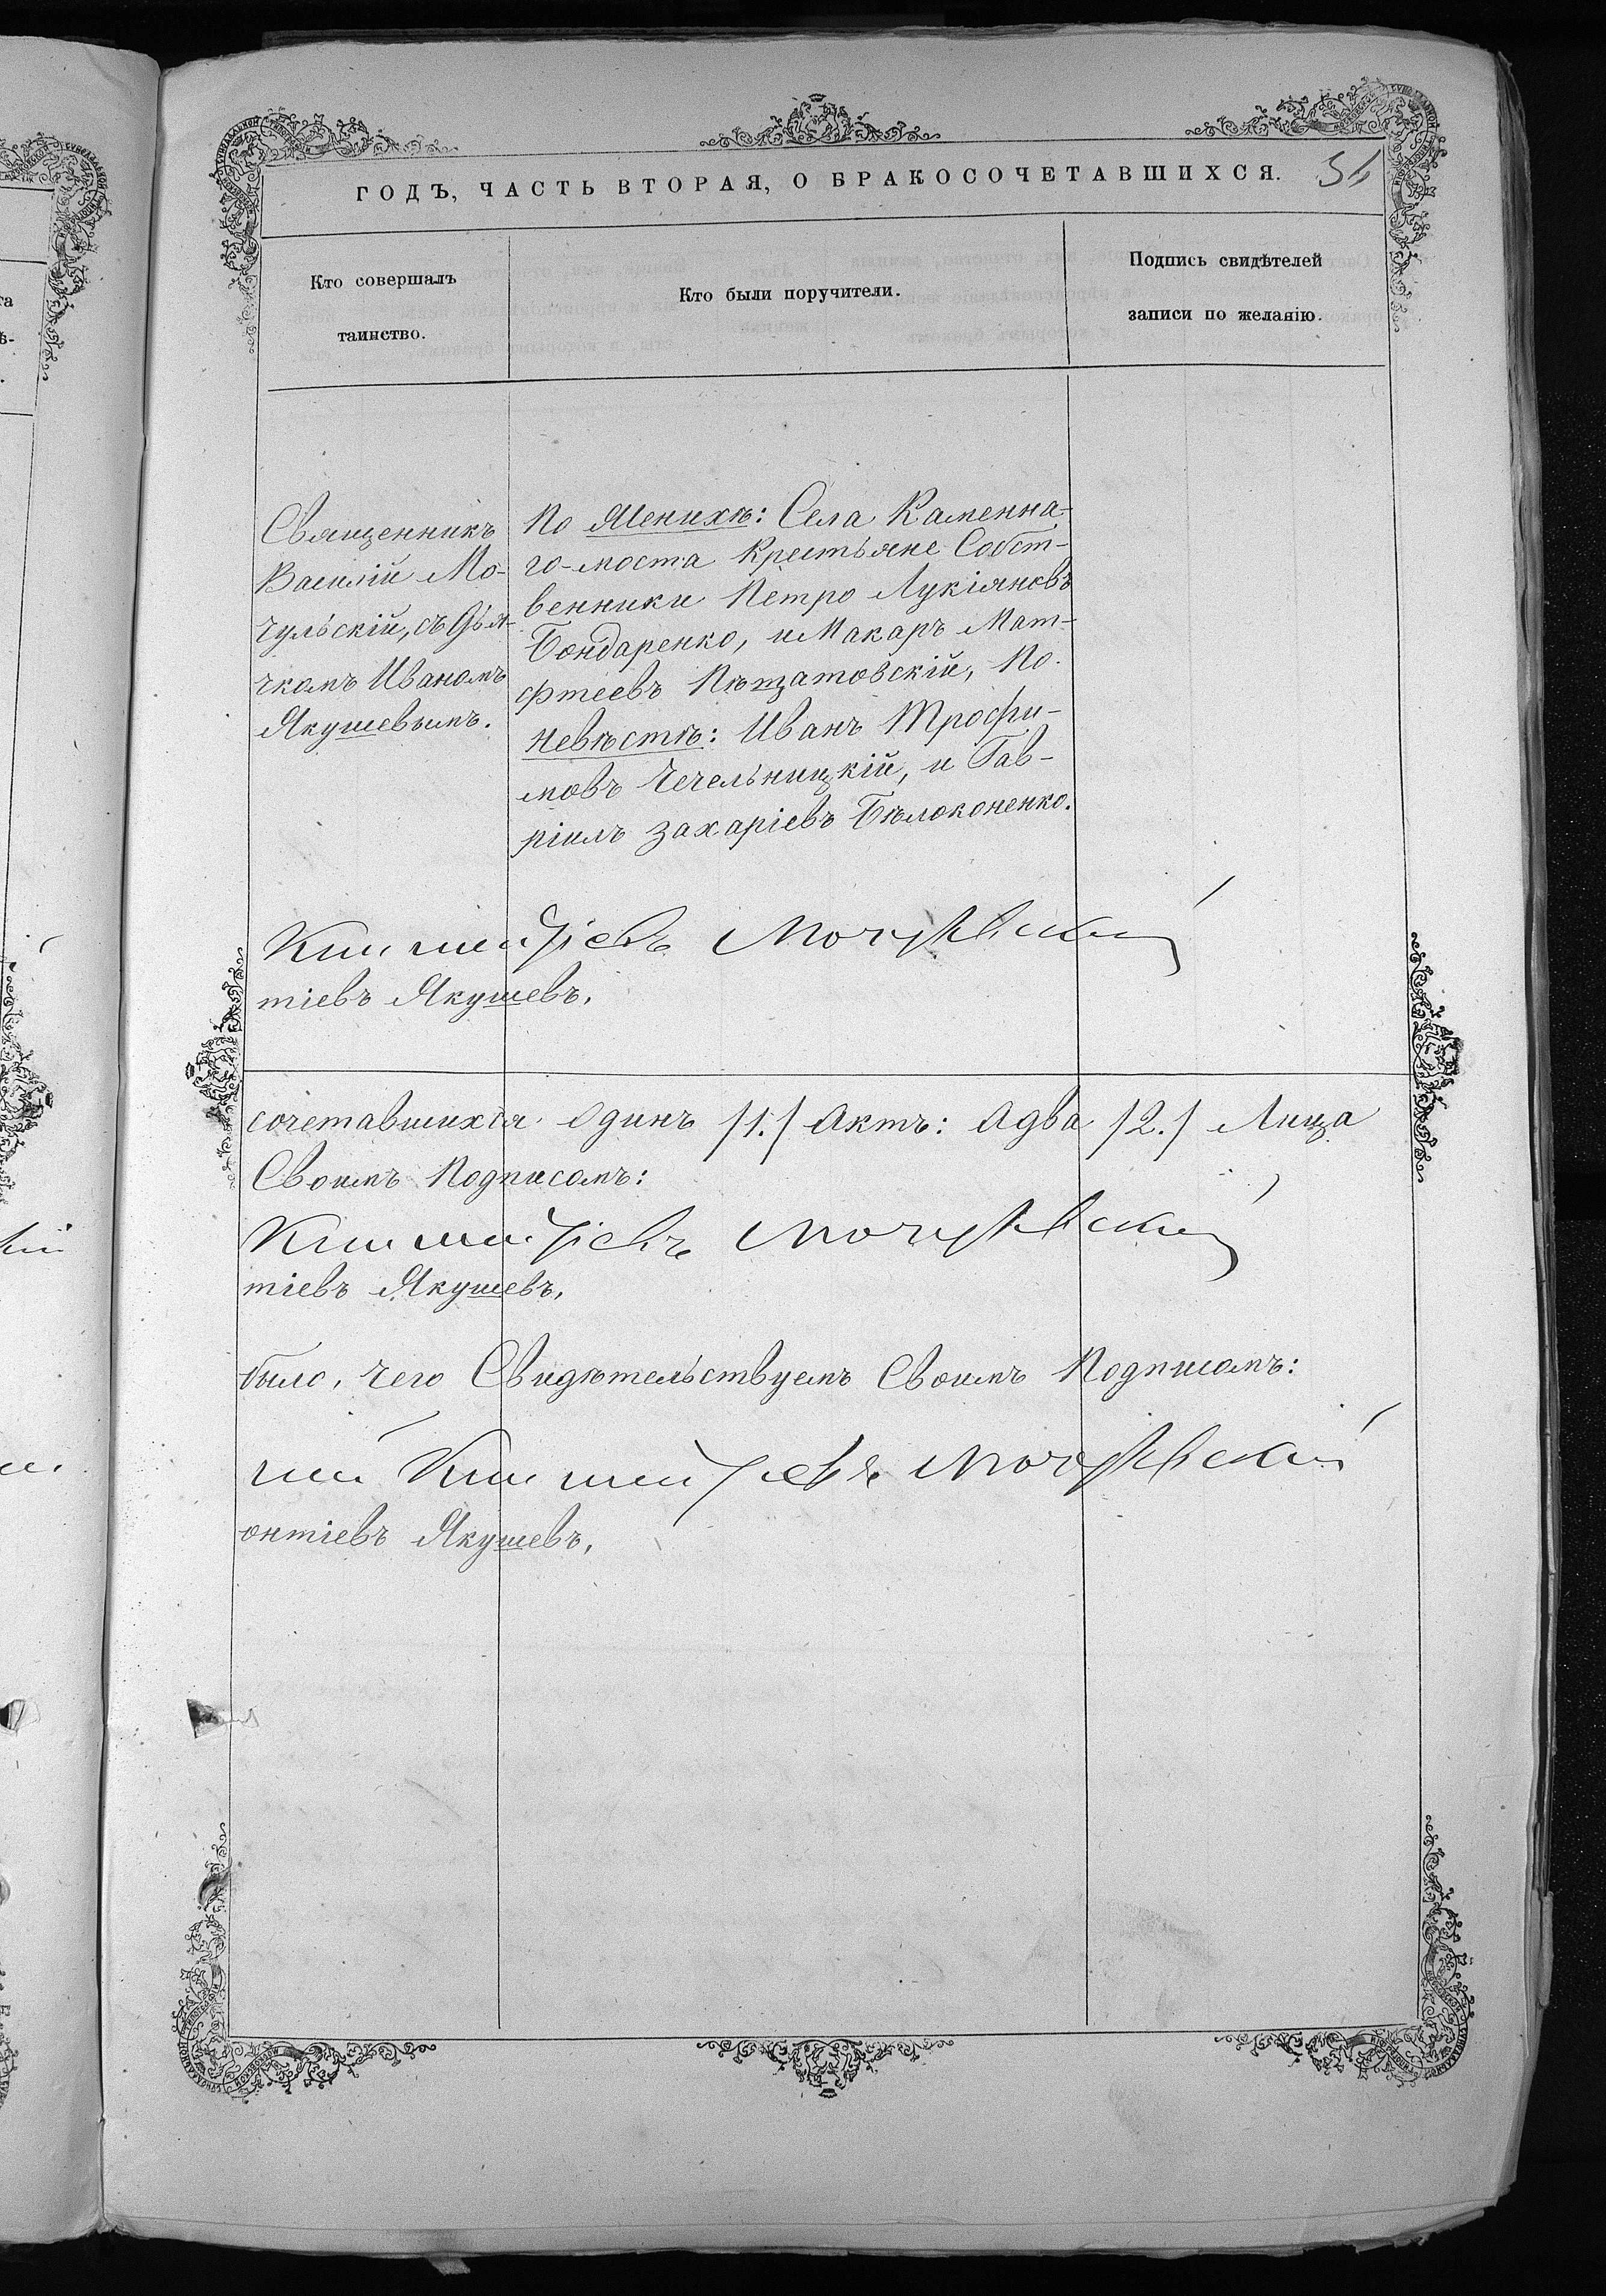 ГОДЪ, ЧАСТЬ ВТОРАЯ, О БРАКОСОЧЕТАВШИХСЯ.
Кто совершалъ
таинство.
Кто были поручители.
Подпись свидѣтелей
записи по желанію.
Священникъ
Василій Мо-
чульскій, съ Дья-
чкомъ Иваномъ
Якушевымъ.
По Женихѣ: Села Каменна-
го-моста Крестьяне Собст-
венники Петро Лукіяновъ
Бондаренко, и Макаръ Мат-
фтеевъ По
Невѣстѣ: Иванъ Трофи-
мовъ Чечельницкій, и Гав-
ріилъ Захаріевъ Бѣлоконенко.
Мочульскій
тіевъ Якушевъ,
сочетавшихся Одинъ /1./ Актъ: Адва /2./ Лица
Своимъ Подписомъ:
Мочульскій
тіевъ Якушевъ,
было, чего Свидѣтельствуемъ Своимъ Подписомъ:
Мочульскій
онтіевъ Якушевъ,